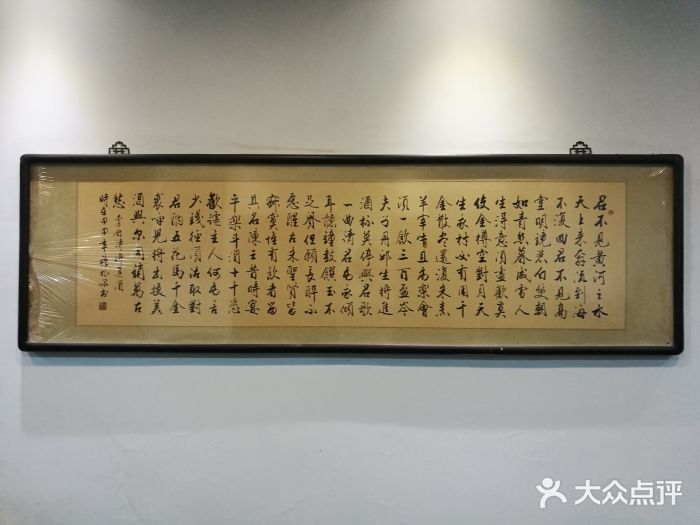 君不見黄河之水
天上来奔流到海
不復回君不見高
堂明鏡悲白髮朝
如青絲暮成雪人
生得意須盡歡莫
使金樽空對月天
生我材必有用千
金散盡還復来烹
羊宰牛且為樂會
須一飲三百盃岑
夫子丹邱生将進
酒杯莫停與君歌
一曲請君為我傾
耳聽鐘鼓饌玉不
足貴但願長醉不
愿醒古来聖賢皆
寂寞惟有飲者留
其名陳王昔時宴
平樂斗酒十千恣
歡謔主人何為言
少錢徑須沽取對
君酌五花馬千金
裘呼兒将出换美
酒與尔同銷萬古
愁 李白詩将進酒
時在甲申年書
大众点评